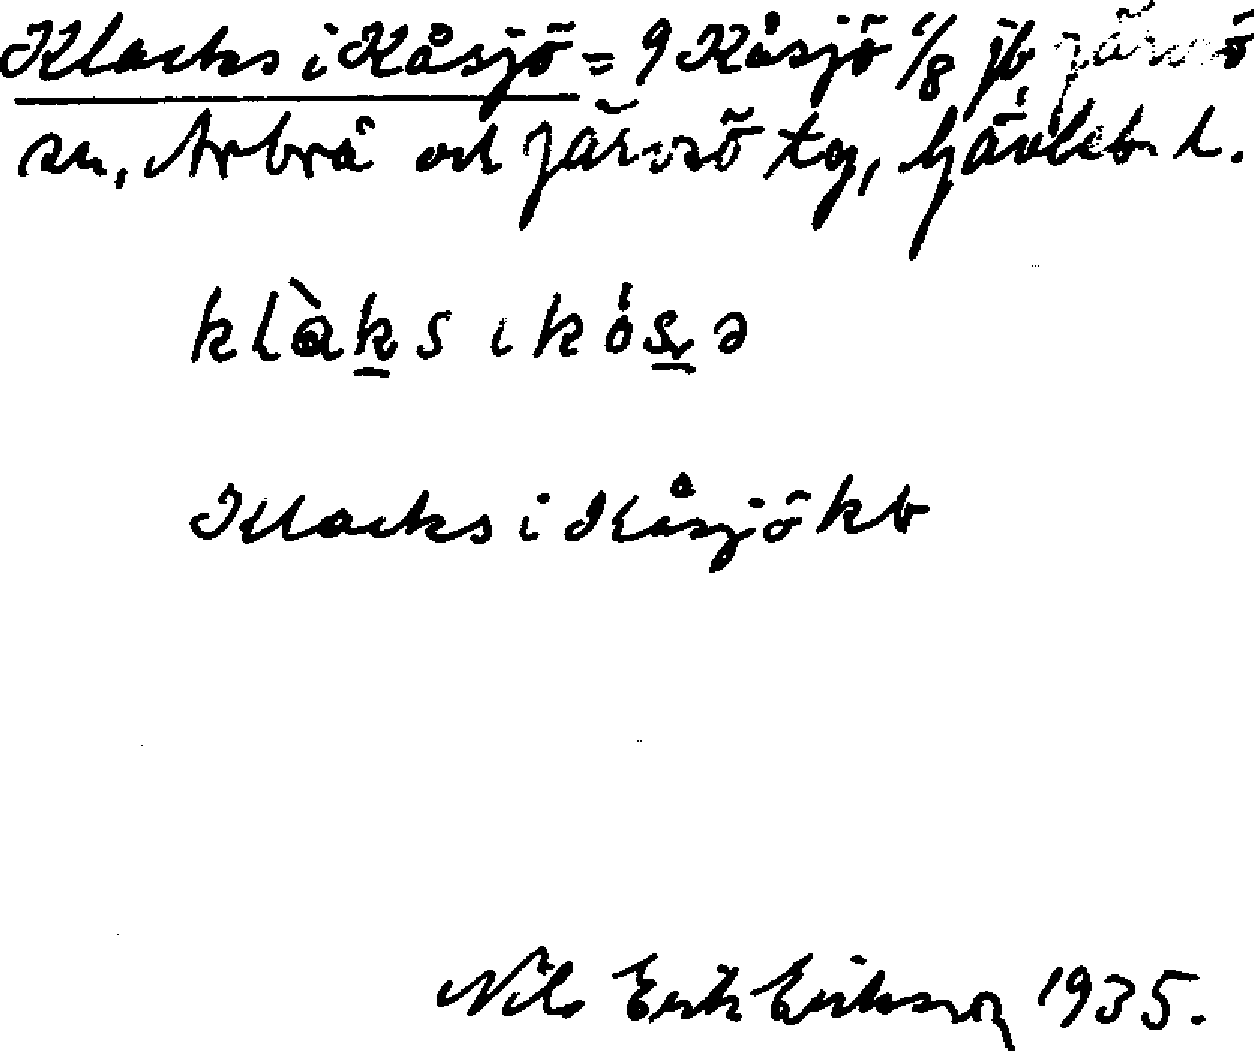 Klacks i Kåsjö = 9 Kåsjö 1/8 jb, Järvsö
sn, Arbrå och Järvsö tg, Gävleb. l.
klàk̲s ι kós̲ə
Klacks i Kåsjö kb
Nils Erik Eriksson 1935.